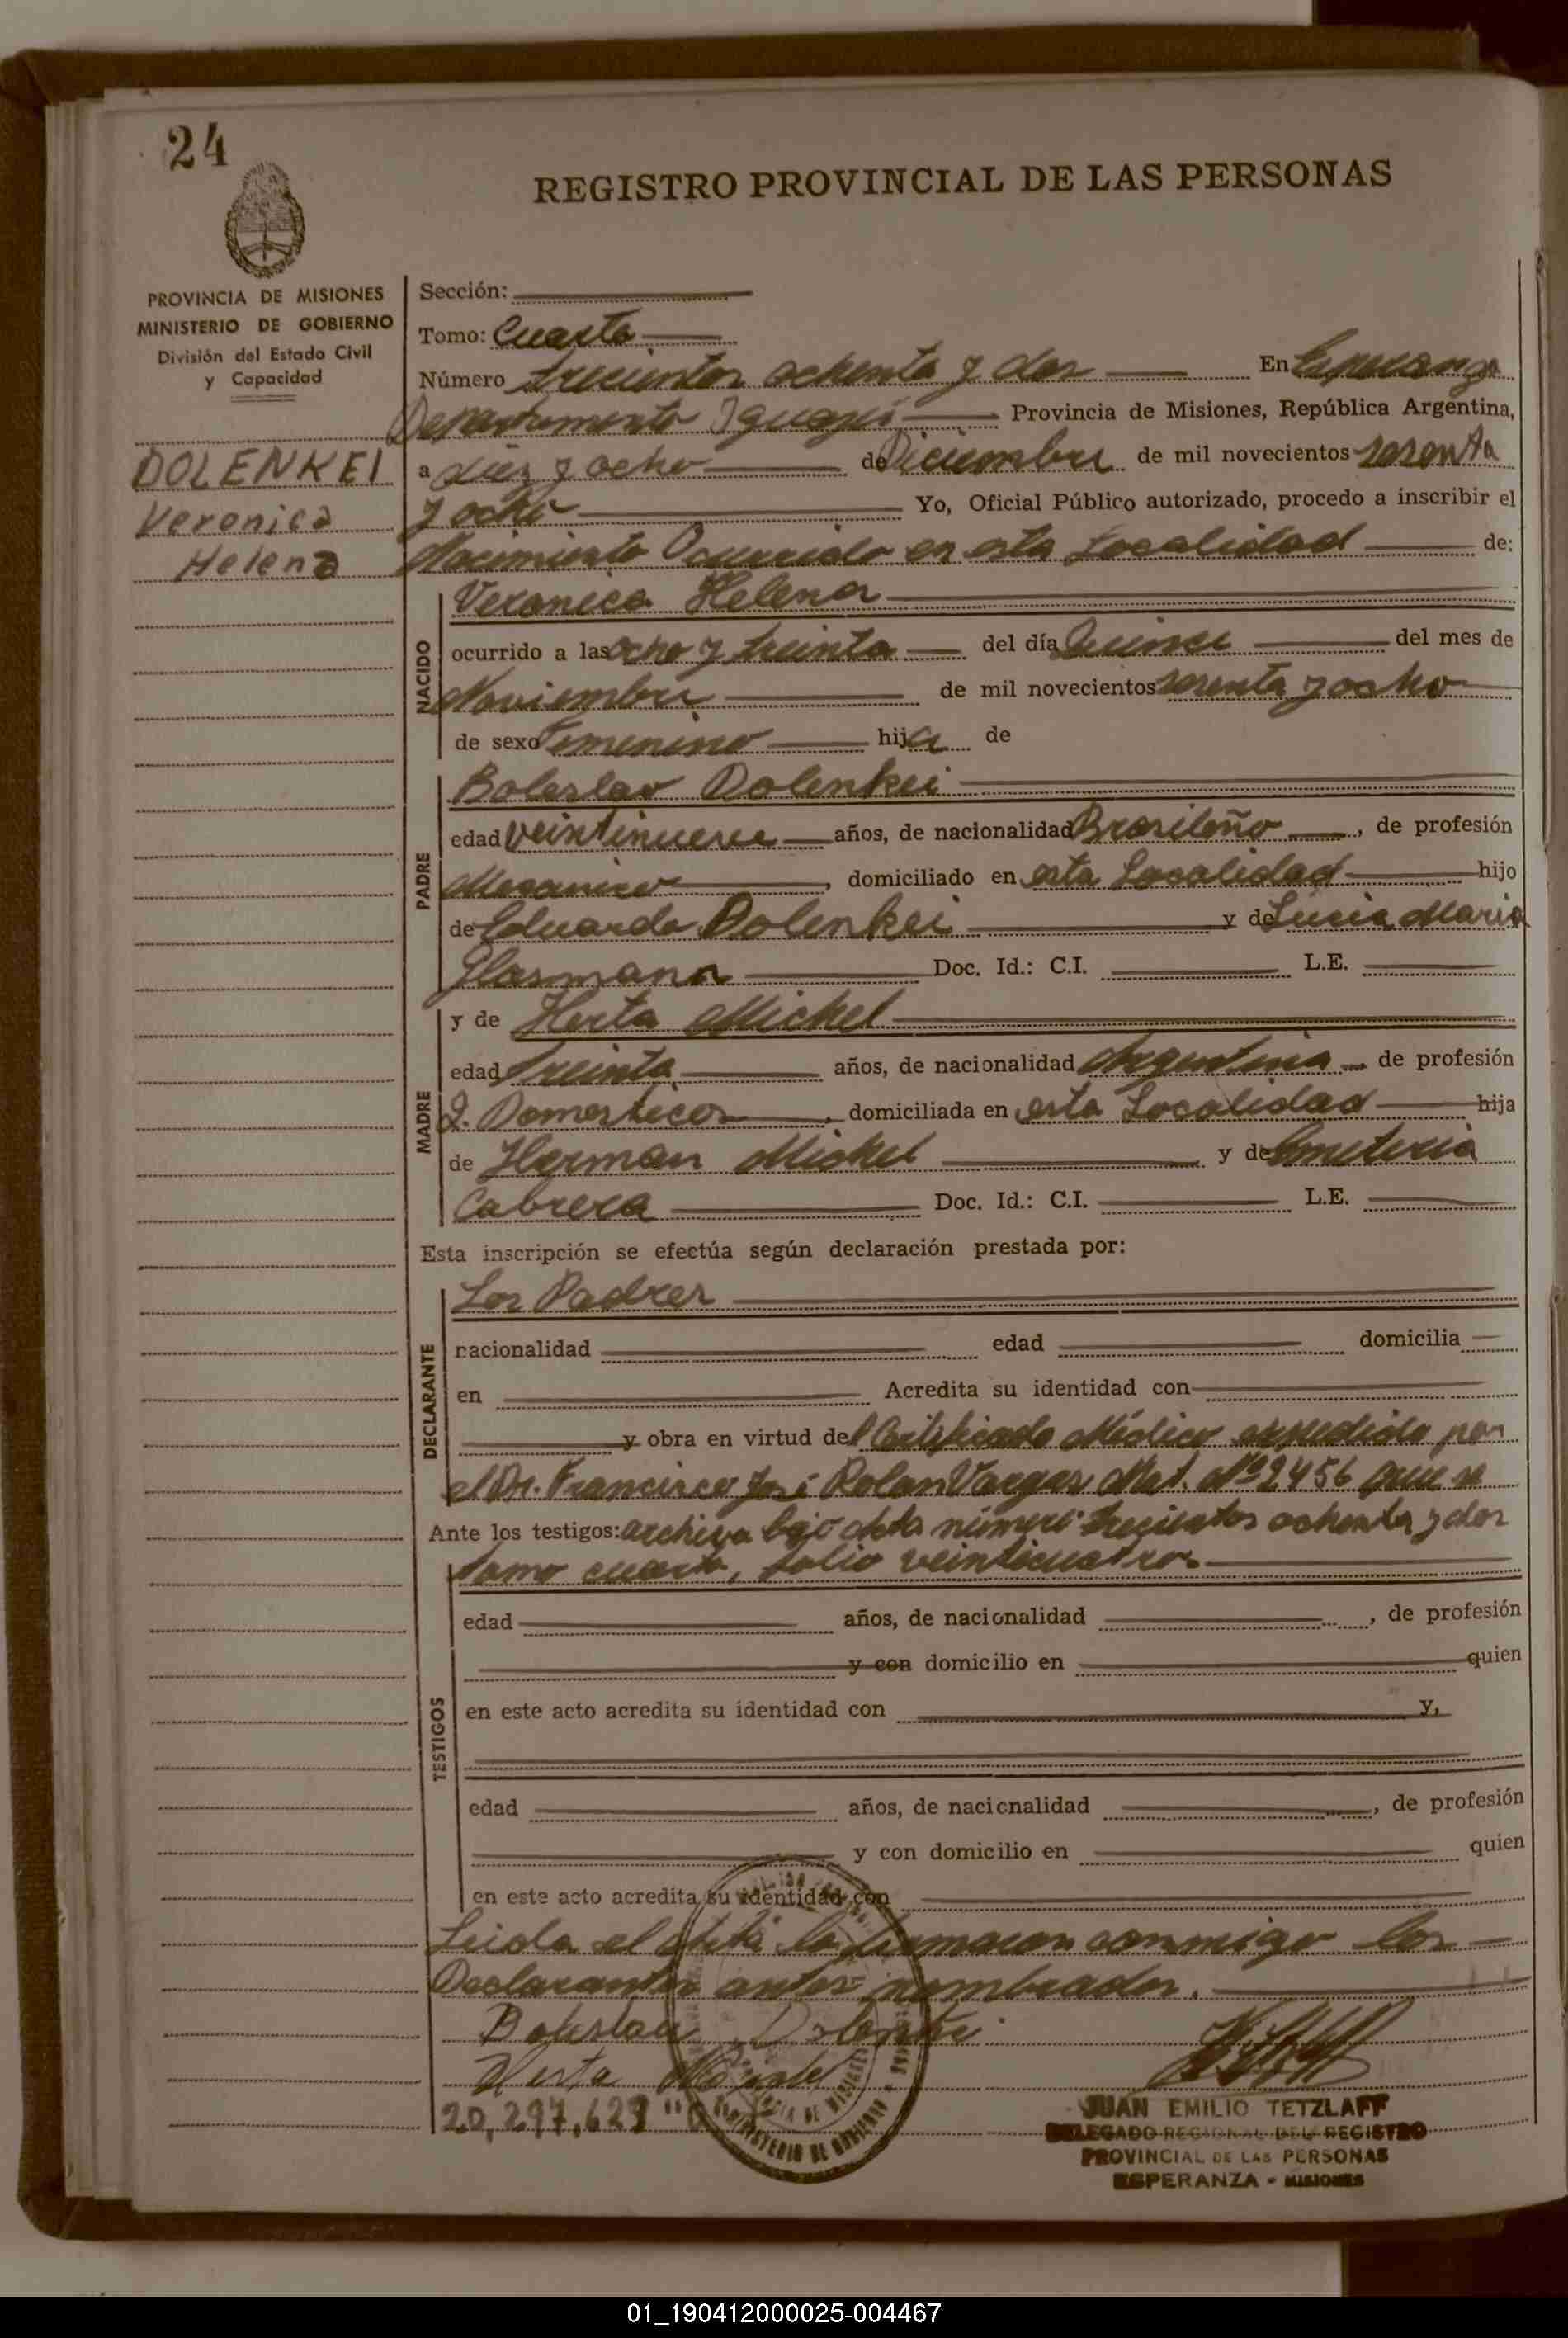 24
REGISTRO PROVINCIAL DE LAS PERSONAS
PROVINCIA DE MISIONES
MINISTERIO DE GOBIERNO
División del Estado Civil
y Capacidad
DOLENKEI
Veronica
Helena
Sección:
Tomo: Cuarto
Número trescientos ochenta y dos En Esperanza
Departamento Iguazú Provincia de Misiones, República Argentina,
a diez y ocho de Diciembre de mil novecientos sesenta
y ocho Yo, Oficial Público autorizado, procedo a inscribir el
Nacimiento Ocurrido en esta Localidad de:
NACIDO
Veronica Helena
ocurrido a las ocho y treinta del día Quince del mes de
Noviembre de mil novecientos sesenta y ocho
de sexo Femenino hija de
PADRE
Boleslao Dolenkei
edad veintinueve años, de nacionalidad Brasileño, de profesión
Mecanico, domiciliado en esta Localidad hijo
de Eduardo Dolenkei y de Lucia Maria
Glasmann Doc. Id.: C.I. L.E.
MADRE
y de Herta Michel
edad treinta años, de nacionalidad Argentina de profesión
Q. Domesticos, domiciliada en esta Localidad hija
de Herman Michel y de Emeteria
Cabrera Doc. Id.: C.I. L.E.
Esta inscripción se efectúa según declaración prestada por:
DECLARANTE
Los Padres
nacionalidad edad domicilia
en Acredita su identidad con
y obra en virtud del Certificado Médico expedido por
el Dr. Francisco José Rolan Vargas Mat. Nº 2456 que se
Ante los testigos: archiva bajo acta número trescientos ochenta y dos
tomo cuarto, folio veinticuatro.
TESTIGOS
edad años, de nacionalidad , de profesión
y con domicilio en quien
en este acto acredita su identidad con y,
edad años, de nacionalidad , de profesión
y con domicilio en quien
en este acto acredita su identidad con
Leida el acta la firmaron conmigo los
Declarantes antes nombrados.
Boleslau Dolenkei
Herta Michel
20,297,629
JUAN EMILIO TETZLAFF
DELEGADO REGIONAL DEL REGISTRO
PROVINCIAL DE LAS PERSONAS
ESPERANZA - MISIONES
01_190412000025-004467